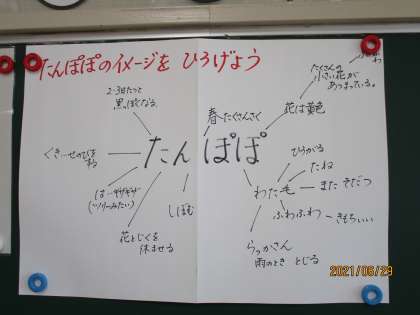 たんぽぽのイメージを ひろげよう
たくさんの
小さい花が
あつまっている。
2-3日たつと
黒っぽくなる
春 たくさんさく
花は黄色
たんぽぽ
ひろがる
たね
わた毛
また そだつ
ふわふわ
きもちいい
はーギザギザ
しぼむ
花とじくを
休ませる
らっかさん
雨のとき とじる
2021/06/29